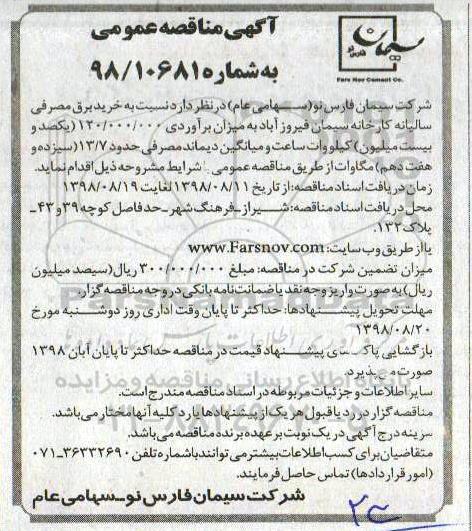 آگهی مناقصه عمومی
به شماره ۹۸/۱۰۶۸۱
سیمان فارس نو
Fars Nov Cement Co.
شرکت سیمان فارس نو(سهامی عام) در نظر دارد نسبت به خرید برق مصرفی
سالیانه کارخانه سیمان فیروزآباد به میزان برآوردی ۱۲۰/۰۰۰/۰۰۰ (یکصد و
بیست میلیون) کیلووات ساعت و میانگین دیماند مصرفی حدود ۱۳/۷ (سیزده و
هفت دهم) مگاوات از طریق مناقصه عمومی شرایط مشروحه ذیل اقدام نماید.
زمان دریافت اسناد مناقصه: از تاریخ ۱۳۹۸/۰۸/۱۱ لغایت ۱۳۹۸/۰۸/۱۹
محل دریافت اسناد مناقصه: شیراز-فرهنگ شهر-حدفاصل کوچه ۳۹ و ۴۳-
پلاک ۱۳۲.
یا از طریق وب سایت: www.Farsnov.com
میزان تضمین شرکت در مناقصه: مبلغ ۳۰۰/۰۰۰/۰۰۰ ریال (سیصد میلیون
ریال) به صورت واریز وجه نقد یا ضمانت نامه بانکی در وجه مناقصه گزار.
مهلت تحویل پیشنهادها: حداکثر تا پایان وقت اداری روز دوشنبه مورخ
۱۳۹۸/۰۸/۲۰
بازگشایی پاکت های پیشنهاد قیمت در مناقصه حداکثر تا پایان آبان ۱۳۹۸
صورت می پذیرد.
سایر اطلاعات و جزئیات مربوطه در اسناد مناقصه مندرج است.
مناقصه گزار در رد یا قبول هر یک از پیشنهادها یا رد کلیه آنها مختار می باشد.
هزینه درج آگهی در یک نوبت بر عهده برنده مناقصه می باشد.
متقاضیان برای کسب اطلاعات بیشتر می توانند با شماره تلفن ۳۶۳۳۲۶۹۰-۰۷۱
(امور قراردادها) تماس حاصل فرمایند.
شرکت سیمان فارس نو-سهامی عام